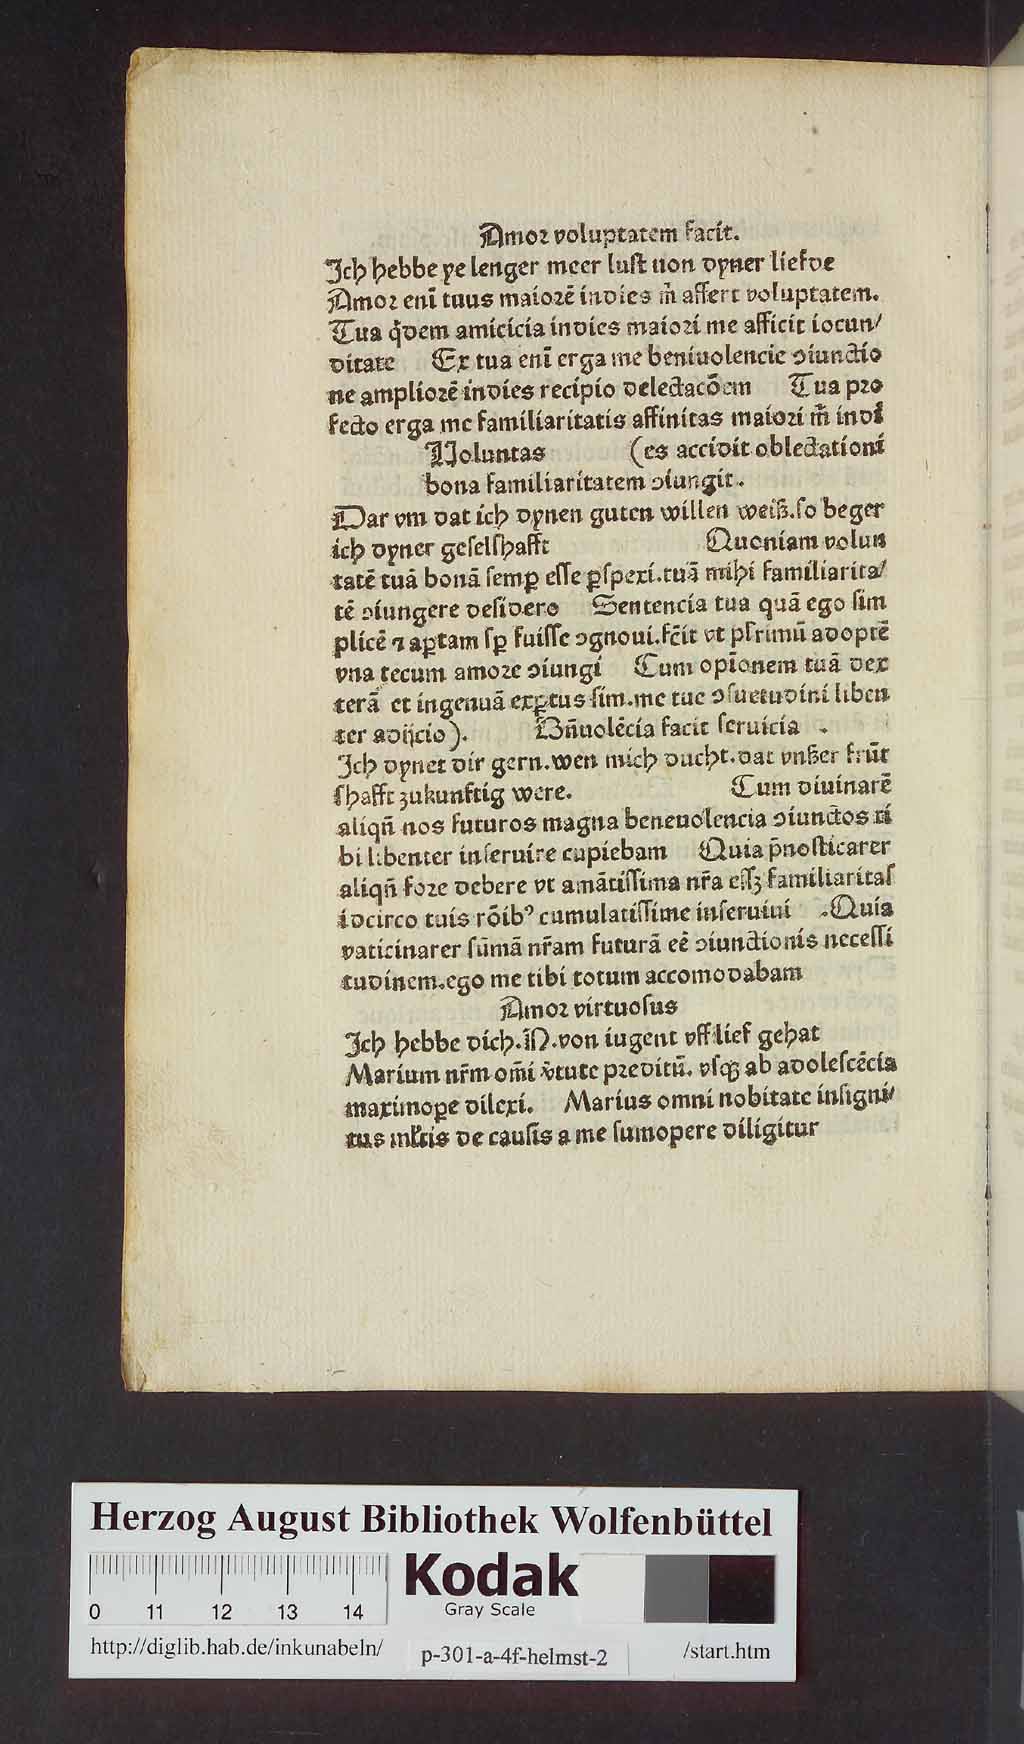 Amor voluptatem facit.
Ich hebbe ye lenger meer lust uon dyner liefde
Amor enī tuus maiorē indies m̄ affert voluptatem.
Tua q̄dem amicicia indies maiori me afficit iocun/
ditate Ex tua enī erga me beniuolencie ↄiunctio
ne ampliorē indies recipio delectacōem Tua pro
fecto erga me familiaritatis affinitas maiori m̄ indi
Uoluntas (es accidit oblectationi
bona familiaritatem ↄiungit.
Dar vm dat ich dynen guten willen weiß.so beger
ich dyner geselshafft Quoniam volun
tatē tuā bonā semꝑ esse ꝑspexi.tuā mihi familiarita/
tē ↄiungere desidero Sentencia tua quā ego sim
plicē ⁊ aꝑtam sꝑ fuisse ↄgnoui.fc̄it vt pl̄rimū adoptē
vna tecum amore ↄiungi Cum opīonem tuā dex
terā et ingenuā exꝑtus sim.me tue ↄsuetudini liben
ter adijcio). Bn̄uolēcia facit seruicia .
Ich dynet dir gern.wen mich ducht.dat vnßer frūt
shafft zukunftig were. Cum diuinarē
aliqn̄ nos futuros magna beneuolencia ↄiunctos ti
bi libenter inseruire cupiebam Quia p̄nosticarer
aliqn̄ fore debere vt amātissima nr̄a essꝫ familiaritas
idcirco tuis rōibꝰ cumulatissime inseruiui .Quia
vaticinarer sūmā nr̄am futurā eē ↄiunctionis necessi
tudinem.ego me tibi totum accomodabam
Amor virtuosus
Ich hebbe dich.N.von iugent vff lief gehat
Marium nr̄m om̄i v̄tute preditū. vsqꝫ ab adolescēcia
maximope dilexi. Marius omni nobitate insigni/
tus ml̄tis de causis a me sumopere diligitur
Herzog August Bibliothek Wolfenbüttel
Kodak
Gray Scale
0 11 12 13 14
http://diglib.hab.de/inkunabeln/ p-301-a-4f-helmst-2 /start.htm